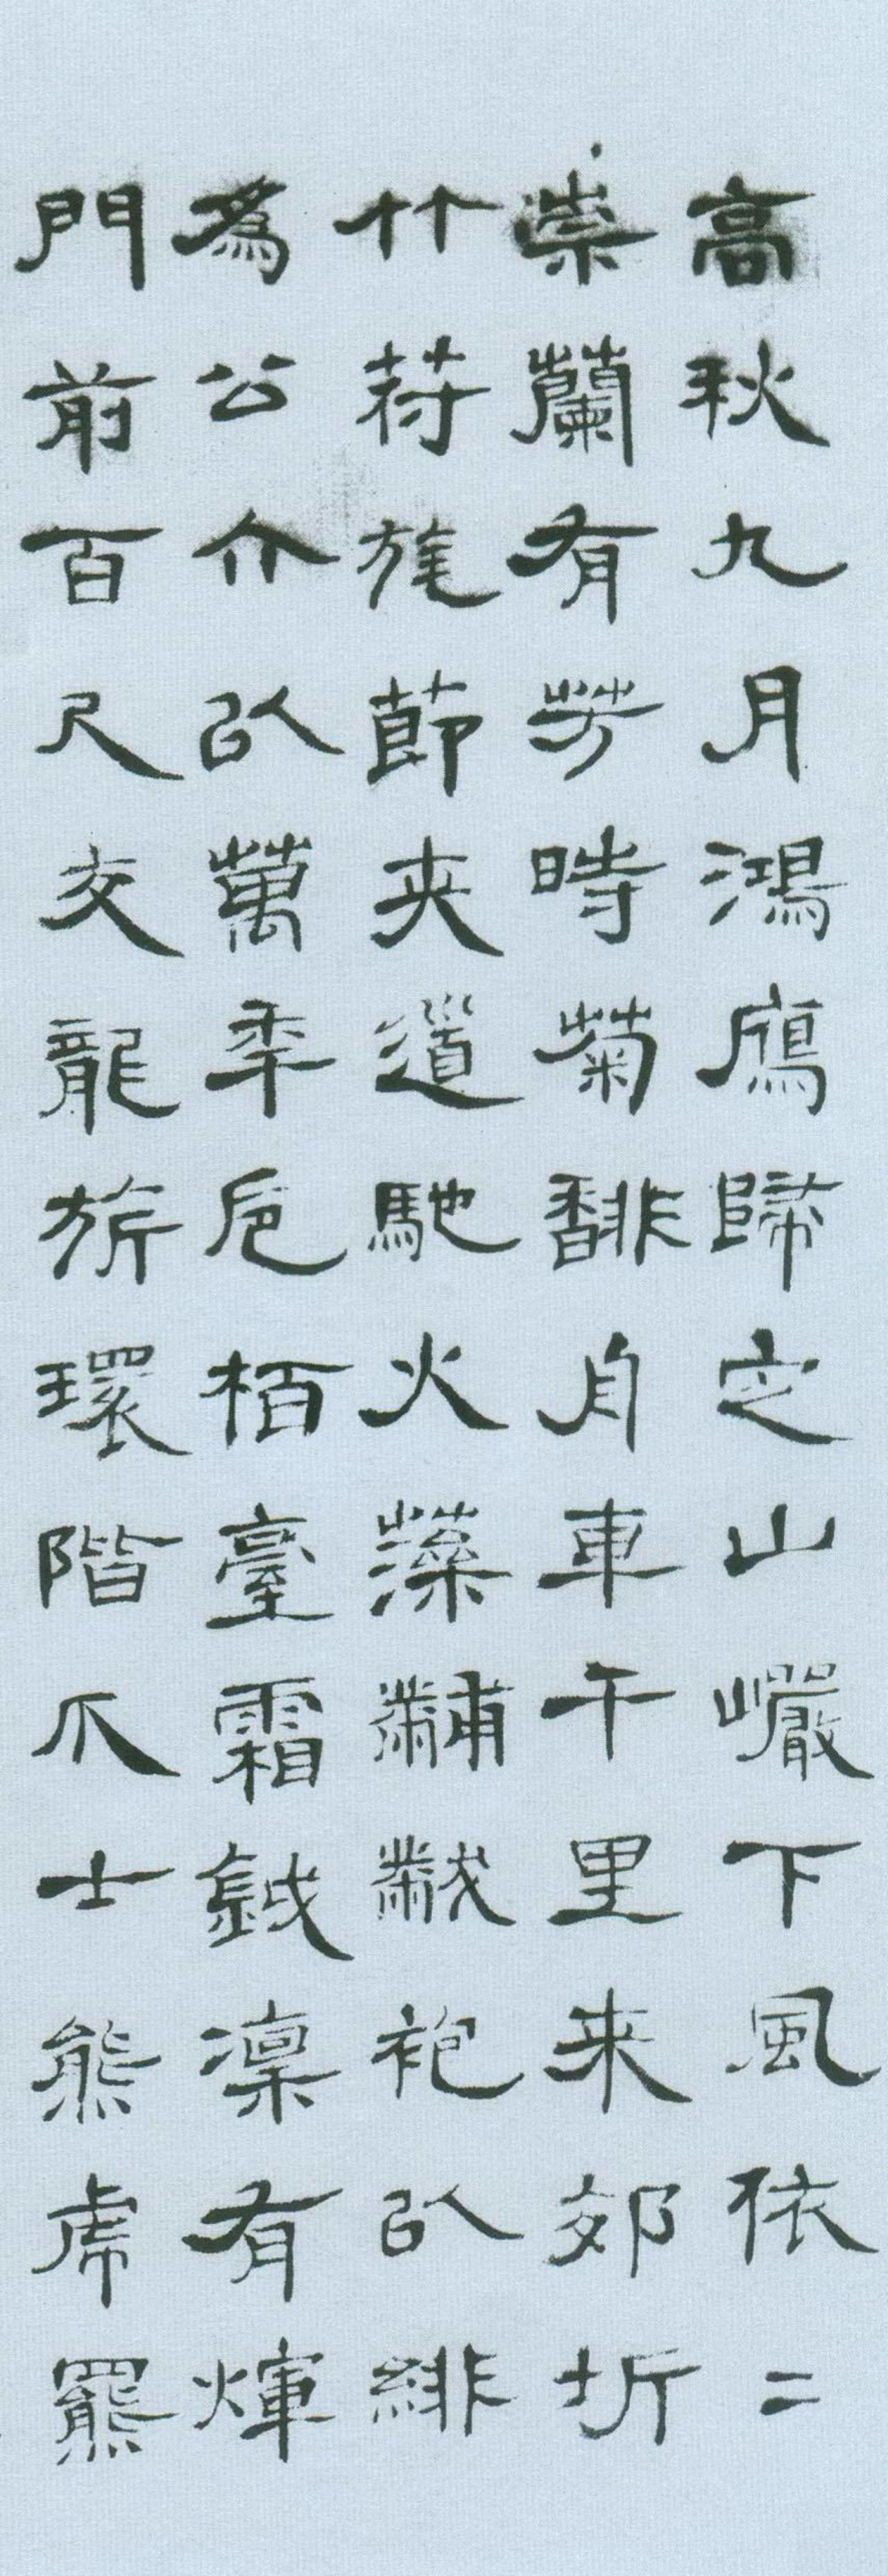 高秋九月鴻鴈歸定山巗下風依二
崇蘭有芳時菊馡舟車千里来郊圻
竹符旄節夾道馳火藻黼黻袍以緋
爲公介以萬年卮栢臺霜鉞凜有煇
門前百尺交龍旂環階爪士熊虎羆